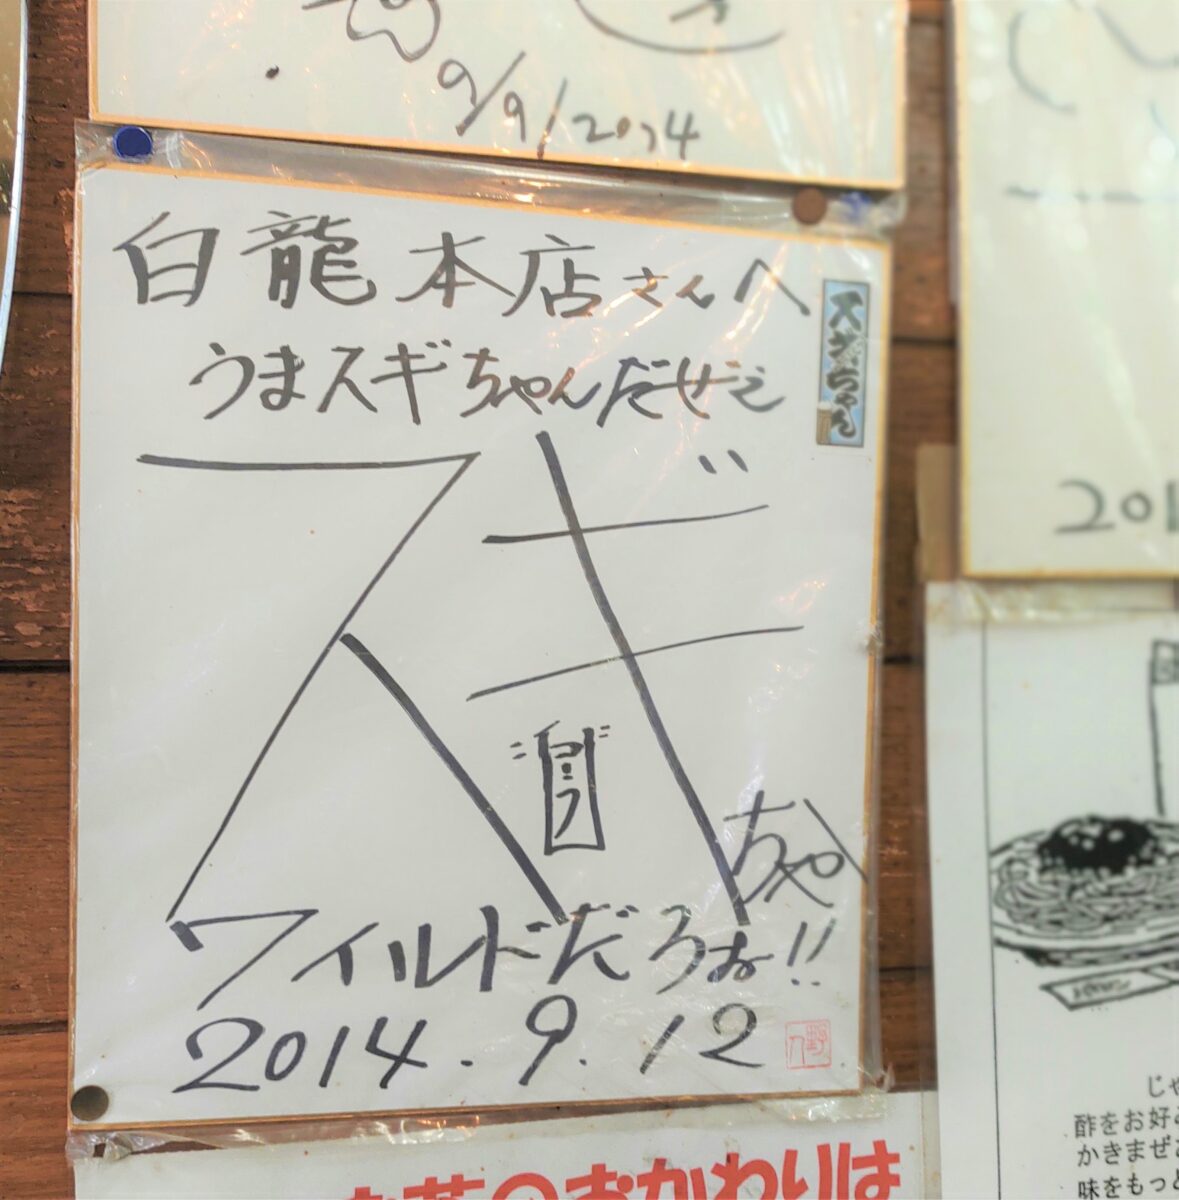 9/9/2014
白龍本店さんへ
スギちゃん
うまスギちゃんだぜぇ
スギ
ちゃん
コーラ
ワイルドだろぉ!!
2014.9.12
201
のおかわりは
じゃ
酢をお好
かきまぜ
味をもっと